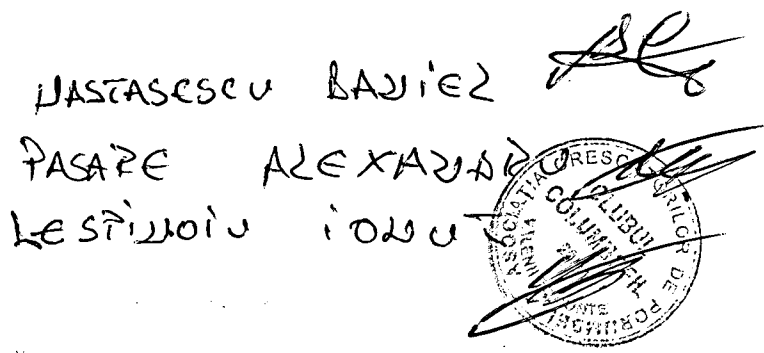 NASTASESCU DANIEL
PASARE ALEXANDRU
IONUT
ASOCIATIA CRESCATORILOR DE PORUMBEI
CLUBUL
COLUMBOFIL